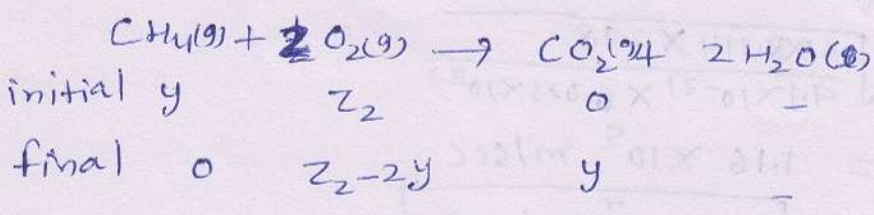 CH4(g) + 2 O2(g) → CO2(g) + 2H2O(l)
initial y z2 0 -
final 0 z2-2y y -